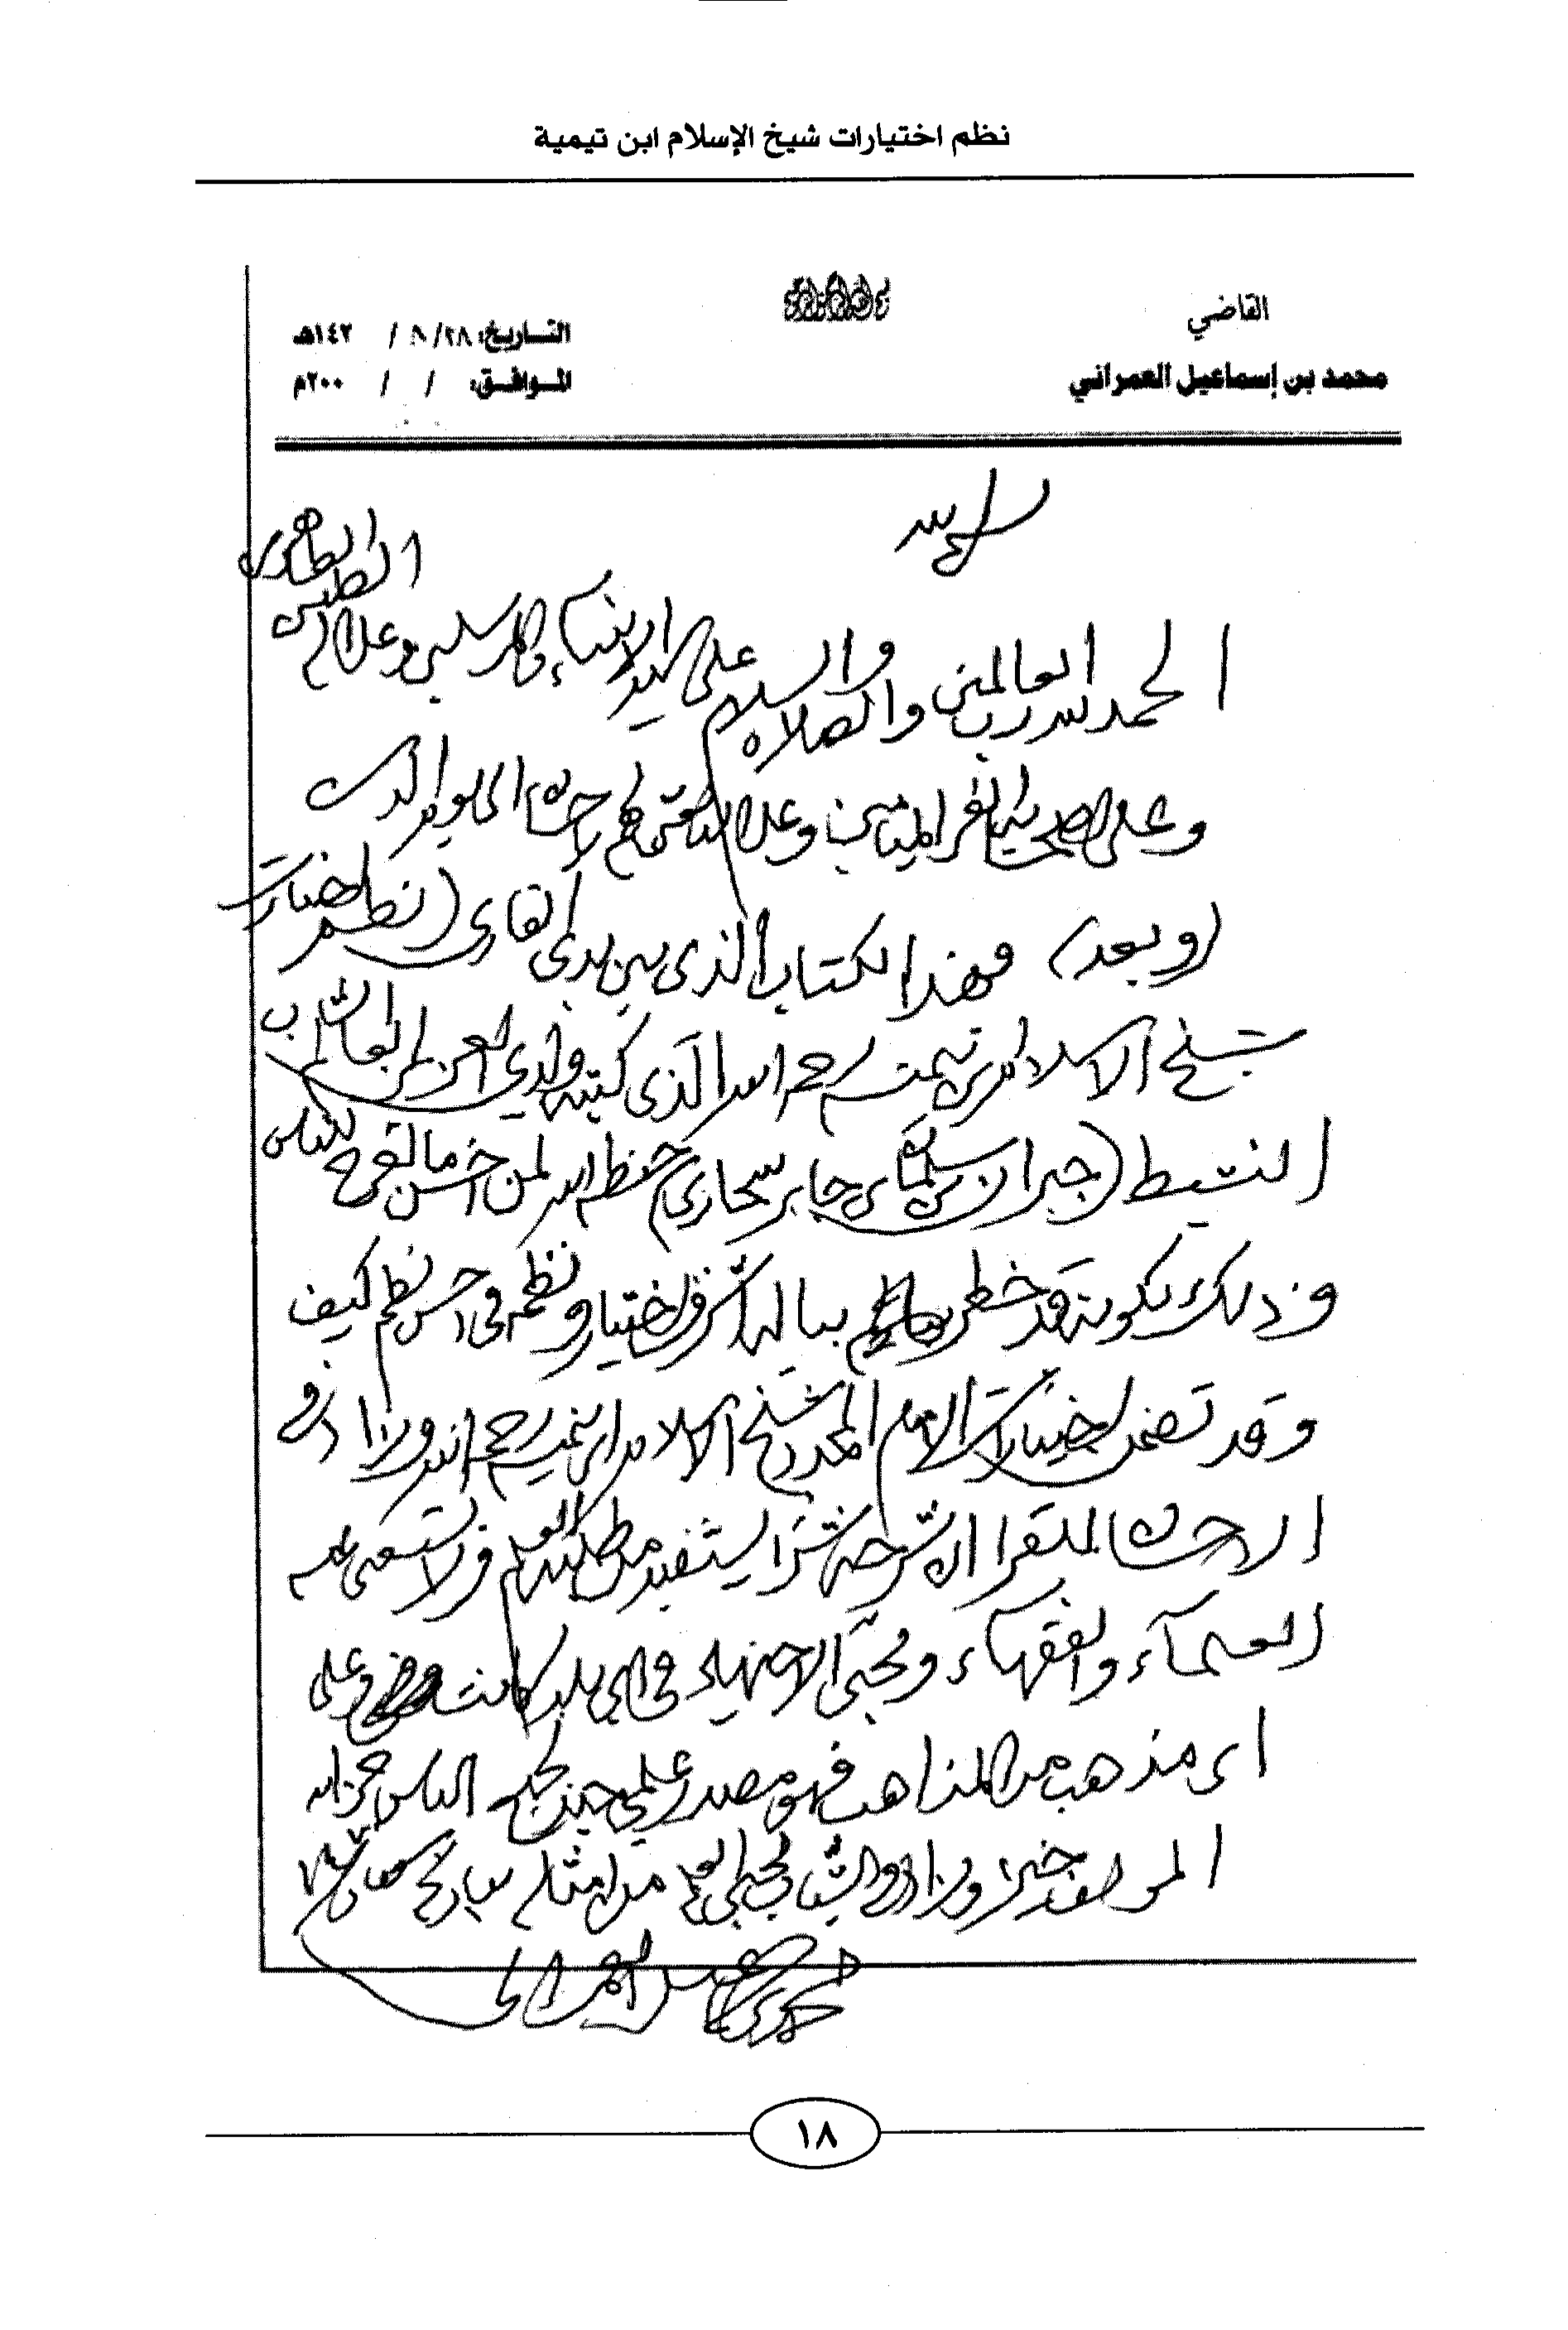 نظم اختيارات شيخ الإسلام ابن تيمية
القاضي
محمد بن إسماعيل العمراني
التاريخ: ٢٨/ ٨/ ١٤٢هـ
الموافق: / / ٢٠٠م
بسم الله
الحمد لله رب العالمين والصلاة والسلام على سيد الأنبياء والمرسلين وعلى آله الطيبين الطاهرين
وعلى أصحابه الغر الميامين وعلى التابعين لهم بإحسان إلى يوم الدين
(وبعد) فهذا الكتاب الذي بين يدي القارئ (نظم اختيارات
شيخ الاسلام ابن تيمية رحمه الله الذي كتبه ولدي العزيز العالم الشاب
النشيط (جبران بن سلمان بن جابر سحاري) حفظه الله لمن احسن ما الف للناس
وذلك لكونه قد خطر بباله أشرف اختيار ونظمه في احسن نظم كيف
وقد تضمن اختيارات الإمام المجدد شيخ الاسلام ابن تيمية رحمه الله وزاد في
الاحسان للقراء ان شرحه شرحا يستفيد منه طلبة العلم ولا يستغني عنه
العلماء والفقهاء ومحبي الاجتهاد في أي بلد كانت وعلى
اي مذهب من المذاهب فهو مصدر علمي الناس جزى الله
المؤلف خيرا وزاد في الشباب محبي العلم من امثاله بتاريخ شعبان
محمد بن إسماعيل العمراني
١٨